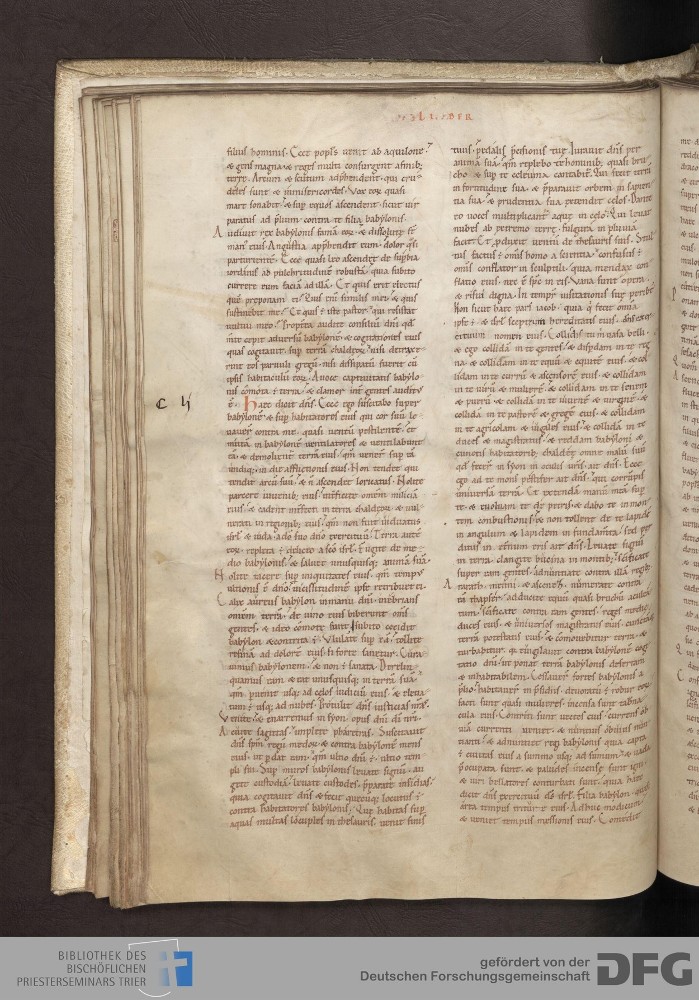 filius hominis. Ecce popłs uenit ab aquilone.
& gens magna & reges multi consurgent a finib;
terrę. Arcum & scutum adp̃hendent. qui cru
deles sunt & inmisericordes. Vox eoꝝ quasi
mare sonabit. & sup equos ascendent. sicut uir
paratus ad p̃lium contra te filia babylonis.
Audiuit rex babylonis famā eoꝝ. & dissolutę st̄
man' eius. Angustia app̃hendit eum. dolor q̄si
parturientē. Ecce quasi leo ascendet de supbia
iordanis ad pulchritudinē robustā. quia subito
currere eum faciā ad illā. Et quis erit electus
quē preponam ei. Quis eni similis mei. & quis
sustinebit me. Et quis ē iste pastor. qui resistat
uultui meo. Propterea audite consiliū dn̄i qđ
mente cepit aduersū babylonē. & cogitationes eius
quas cogitauit sup terrā chaldeoꝝ. nisi detraxe
rint eos paruuli gregū. nisi dissipatū fuerit cū
ipsis habitaculū eoꝝ. A uoce captiuitatis babylo
nis cōmota ē terra. & clamor int̄ gentes auditus
ē. Haec dicit dn̄s. Ecce ego suscitabo super
babylonē & sup habitatores eius qui cor suū le
uauer̄ contra me. quasi uentū pestilentē. Et
mittā in babylonē uentilatores & uentilabunt
eā. & demolient̄ terrā eius. qm̄ uener̄ sup eā
undiq; in die afflictionis eius. Non tendet qui
tendit arcū suū. & ñ ascendet loricatus. Nolite
parcere iuuenib; eius. interficite omnem miliciā
eius. & cadent int̄fecti in terra chaldeoꝝ. & uul
nerati in regionib; eius. qm̄ non fuit uiduatus
isrł & iuda. a dō suo dn̄o exercituū. Terra autē
eoꝝ repleta ē delicto a sc̄o isrł. Fugite de me
dio babylonis. & saluet unusquisq; animā suā.
Nolite tacere sup iniquitatem eius. qm̄ tempus
ultionis ē dn̄o. uicissitudinē ipse retribuet ei.
Calix aureus babylon in manu dn̄i. inebrians
omnem terrā. de uino eius biberunt om̄s
gentes. & ideo cōmotę sunt. Subito cecidit
babylon & contrita ē. Vlulate sup eā. tollite
resinā ad dolorē eius si forte sanetur. Cura
uimus babylonem. & non ē sanata. Derelin
quamus eam & eat unusquisq; in terrā suā.
qm̄ puenit usq; ad celos iudiciū eius. & eleua
tum ē usq; ad nubes. Protulit dn̄s iusticias nr̄as.
Venite & enarremus in syon. opus dn̄i dī nr̄i.
Acuite sagittas. implete pharetras. Suscitauit
dn̄s spm̄ regū medoꝝ. & contra babylonē mens
eius ut pdat eam. qm̄ ultio dn̄i ē. ultio tem
pli sui. Sup muros babylonis leuate signū. au
gete custodiā. leuate custodes. p̃parate insidias.
quia cogitauit dn̄s & fecit quęcuq; locutus ē
contra habitatores babylonis. Quę habitas sup
aquas multas. locuples in thesauris. uenit finis
tuus. p̃edalis p̃cisionis tuę. Iurauit dn̄s p̄ er
animā suā. qm̄ replebo te hominib; quasi bru
cho. & sup te celeuma cantabit̄. Qui fecit terrā
in fortitudine sua. & p̃parauit orbem in sapien
tia sua. & prudentia sua extendit celos. Dante
eo uocē multiplicant̄ aquę in celo. Qui leuat
nubes ab extremo terrę. fulgura in pluuiā
facit. Et pduxit uentū de thesauris suis. Stul
tus factus ē omis homo a scientia. confusus ē
omis conflator in sculptili. quia mendax con
flatio eius. nec ē sp̄c in eis. Vana sunt opera.
& risui digna. In tempr̄ uisitationis suę peribt̄.
Non sicut haec pars iacob. quia q̄ fecit omīa
ipse ē. & isrł sceptrum hereditatis eius. dn̄s exer
cituum nomen eius. Collidis tu m̄ uasa belli.
& ego collidā in te gentes. & dispdam in te reg
na. & collidam in te equū & equitē eius. & col
lidam in te currū & ascensorē eius. & collidā
in te uirū & mulierē. & collidam in te senem
& puerū. & collidā in te iuuenē & uirginē. &
collidā in te pastorē & gregē eius. & collidam
in te agricolam & iugales eius. & collidā in te
duces & magistratus. & reddam babyloni &
cunctis habitatorib; chaldeę omne malū suū
qđ fecer̄ in syon in oculis ur̄is ait dn̄s. Ecce
ego ad te mons pestifer ait dn̄s. qui corrūpis
uniuersā terrā. Et extendā manū meā sup
te. & euoluam te de petris. & dabo te in mon
tem combustionis. & non tollent de te lapidē
in angulum & lapidem in fundam̄ta. sed per
ditus in ęternum eris ait dn̄s. Leuate signū
in terra. clangite buccina in gentib;. sc̄ificate
super eam gentes. adnuntiate contra illā regib;
Ararath. menni. & ascenez. numerate contra
eā thapsar. adducite equū quasi bruchū aculea
tum. sc̄ificate contra eam gentes. reges medię.
duces eius. & uniuersos magistratus eius. cunctāq;
terrā potestatis eius. & cōmouebitur terra. &
turbabitur. quia euigilauit contra babylonē cogi
tatio dn̄i. ut ponat terrā babylonis desertam
& inhabitabilem. Cessauer̄ fortes babylonis a
p̃lio. habitauer̄ in p̃sidiis. deuoratū ē robur eoꝝ.
facti sunt quasi mulieres. incensa sunt taberna
cula eius. Contriti sunt uectes eius. currens ob
uiā currenti ueniet. & nuntius obuius nun
tianti. & adnuntiet regi babylonis quia capta
ē ciuitas eius a summo usq; ad summum. & uada
p̃occupata sunt. & paludes incensę sunt igni.
& uiri bellatores conturbati sunt. quia haec
dicit dn̄s exercituū dš isrł. Filia babylon quasi
area tempus triturę eius. Adhuc modicum
& ueniet tempus messionis eius. Comedit
C lj
BIBLIOTHEK DES
BISCHÖFLICHEN
PRIESTERSEMINARS TRIER
gefördert von der
Deutschen Forschungsgemeinschaft
DFG